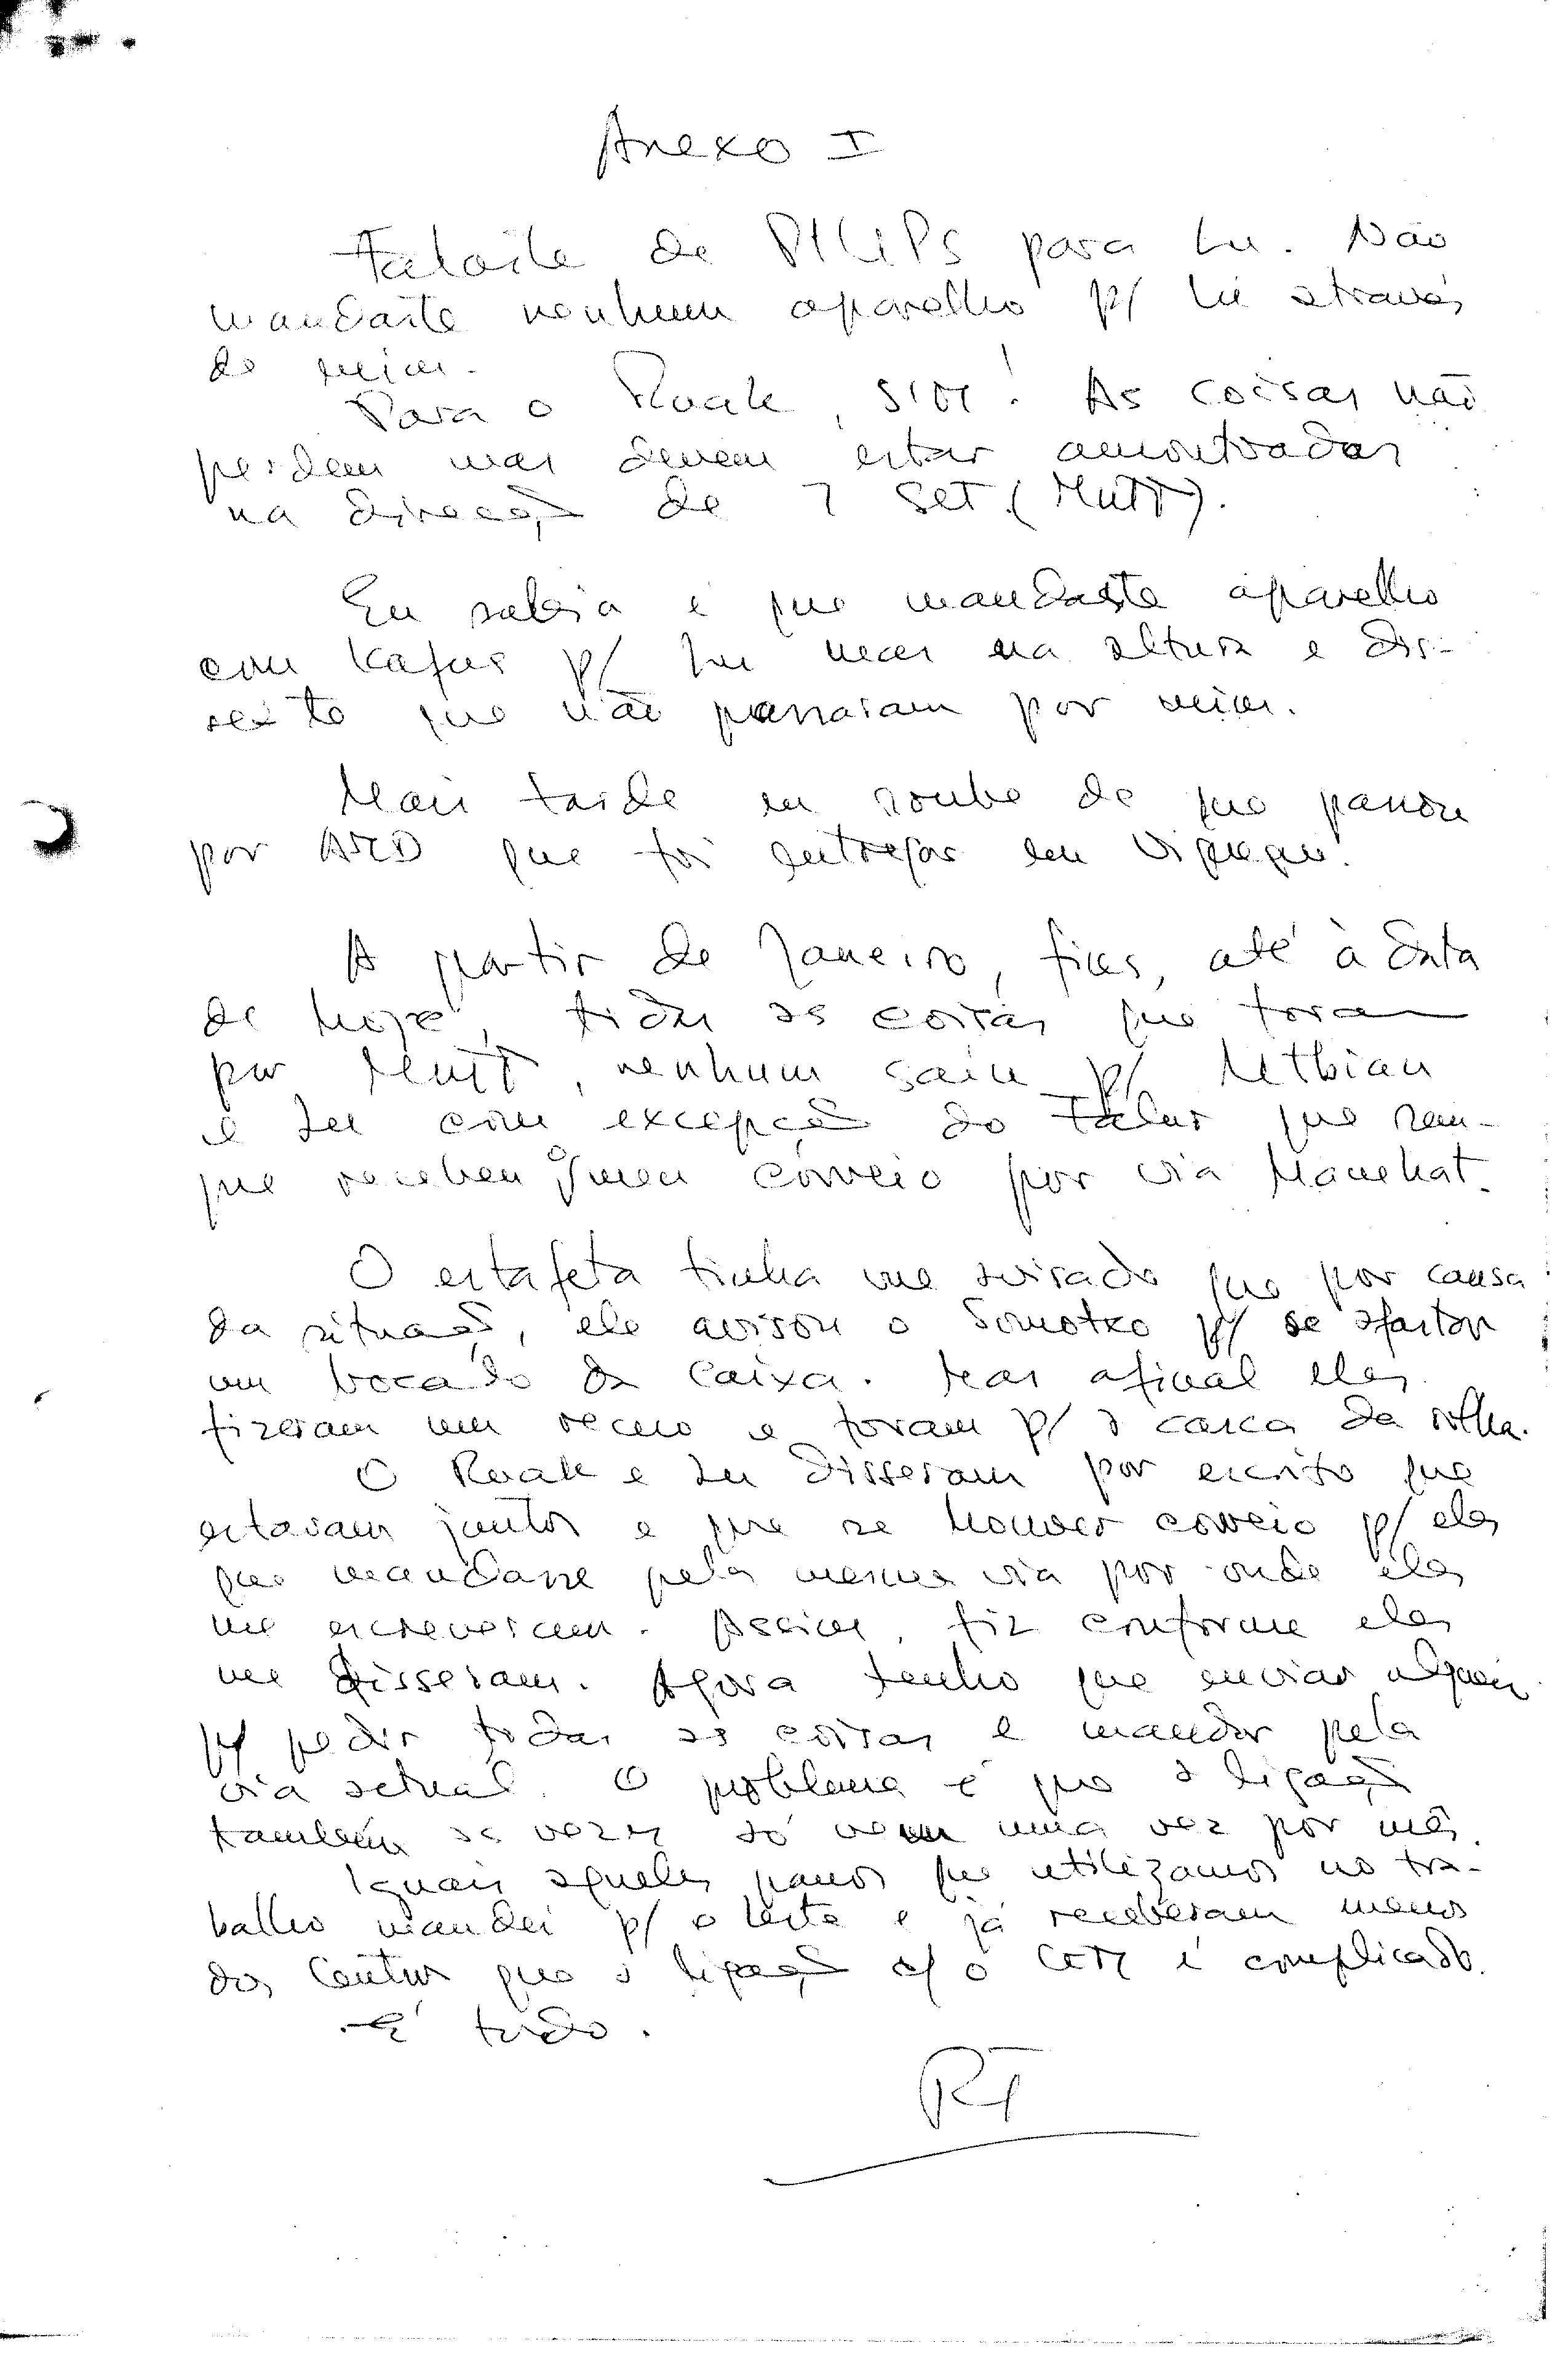 Anexo I
Falaste de PHILIPS para Lu. Não
mandaste nenhum aparelho p/ Lu através
de mim.
Para o Ruak, sim! As coisas não
perdem mas devem estar amontoadas
na direcção de 7 Set. (Mutt).
Eu sabia é que mandaste aparelho
com Kafus p/ Lu mas na altura e dis-
seste que não passaram por mim.
Mais tarde eu soube de que passou
por ARD que foi entregar em Viqueque.
A partir de Janeiro, fins, até à data
de hoje, todas as coisas que foram
por Mutt, nenhum saiu p/ Lethbian
e Lu com excepção do Falur que sem-
pre recebeu o meu correio por via Manehat.
O estafeta tinha me avisado que por causa
da situação, ele avisou o Somotxo p/ se afastar
um bocado da caixa. Mas afinal eles
fizeram um recuo e foram p/ a casca da rolha.
O Ruak e Lu disseram por escrito que
estavam juntos e que se houver correio p/ eles
que mandasse pela mesma via por onde eles
me escreveram. Assim, fiz conforme eles
me disseram. Agora tenho que enviar alguém
p/ pedir todas as coisas e mandar pela
via actual. O problema é que a ligação
também às vezes só vem uma vez por mês.
Iguais aqueles panos que utilizamos no tra-
balho mandei p/ o leste e já receberam menos
dos Centro que a ligação c/ o é complicado.
É tudo.
RT